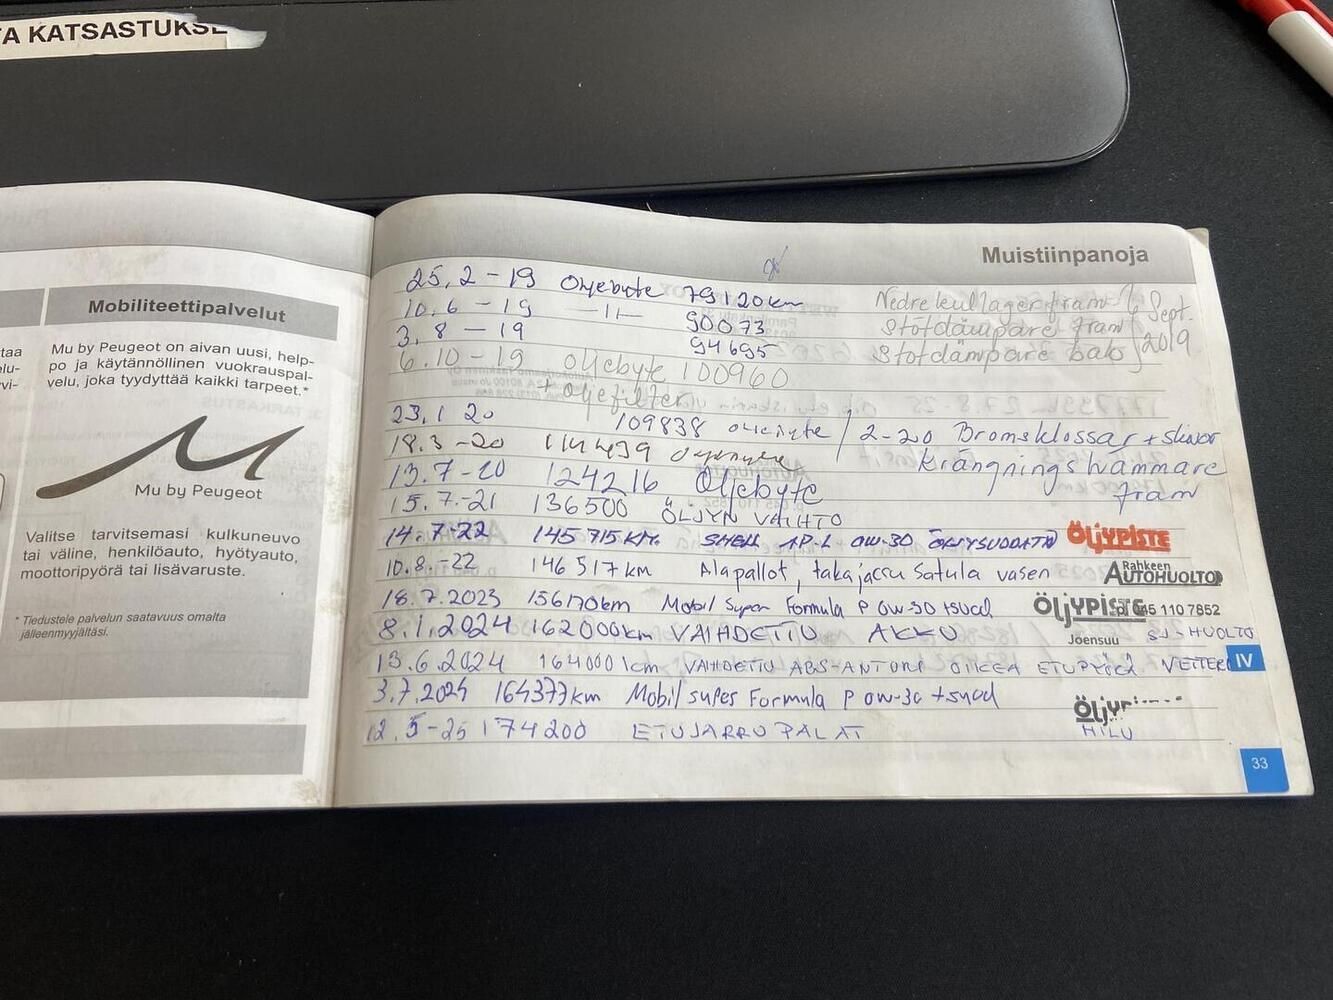 TA KATSASTUKSE
Mobiliteettipalvelut
Mu by Peugeot on aivan uusi, help-
po ja käytännöllinen vuokrauspal-
velu, joka tyydyttää kaikki tarpeet.*
Mu by Peugeot
Valitse tarvitsemasi kulkuneuvo
tai väline, henkilöauto, hyötyauto,
moottoripyörä tai lisävaruste.
* Tiedustele palvelun saatavuus omalta
jälleenmyyjältäsi.
Muistiinpanoja
25.2-19 Oljebyte 79120km
10.6-19 -11- 90073
3.8-19 94695
6.10-19 oljebyte 100960
+ oljefilter
Nedre kullager fram
Stötdämpare fram
Stötdämpare bak
Sept.
2019
23.1 20 109838 / 2-20 Bromsklossar + skivor
18.3-20 114439 Krängningshämmare
13.7-20 124216 Oljebyte fram
15.7.-21 136500 ÖLJYN VAIHTO
14.7-22 145715KM. SHELL AP-L 0W-30 ÖLJYSUODATIN ÖLJYPISTE
10.8.-22 146517km Alapallot, takajarru Satula vasen Rahkeen
AUTOHUOLTO
18.7.2023 156170km Mobil Super Formula P 0W-30 +suod ÖLJYPISTE 045 110 7852
Joensuu
8.1.2024 162000km VAIHDETTU AKKU SJ-HUOLTO
13.6.2024 164000km VAIHDETTU ABS-ANTURI OIKEA ETUPYÖRÄ
IV
3.7.2024 164377km Mobil super Formula P 0W-30 +suod
12.5-25 174200 ETUJARRUPALAT HILU
33